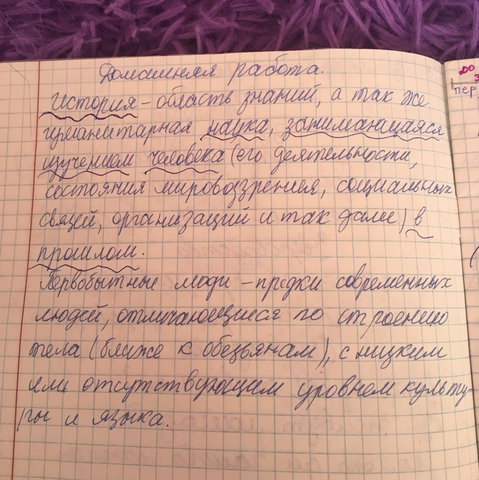 Домашняя работа.
История - область знаний, а так же
гуманитарная наука, занимающаяся
изучением человека (его деятельности,
состояния мировоззрения, социальных
связей, организаций и так далее) в
прошлом.
Первобытные люди - предки современных
людей, отличающиеся по строению
тела (ближе к обезьянам), с низким
или отсутствующим уровнем культу-
ры и языка.
до
пер